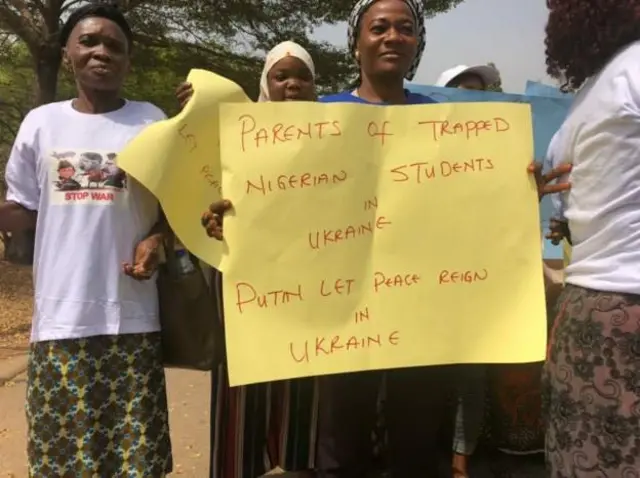 STOP WAR
PARENTS OF TRAPPED
NIGERIAN STUDENTS
IN
UKRAINE
PUTIN LET PEACE REIGN
IN
UKRAINE